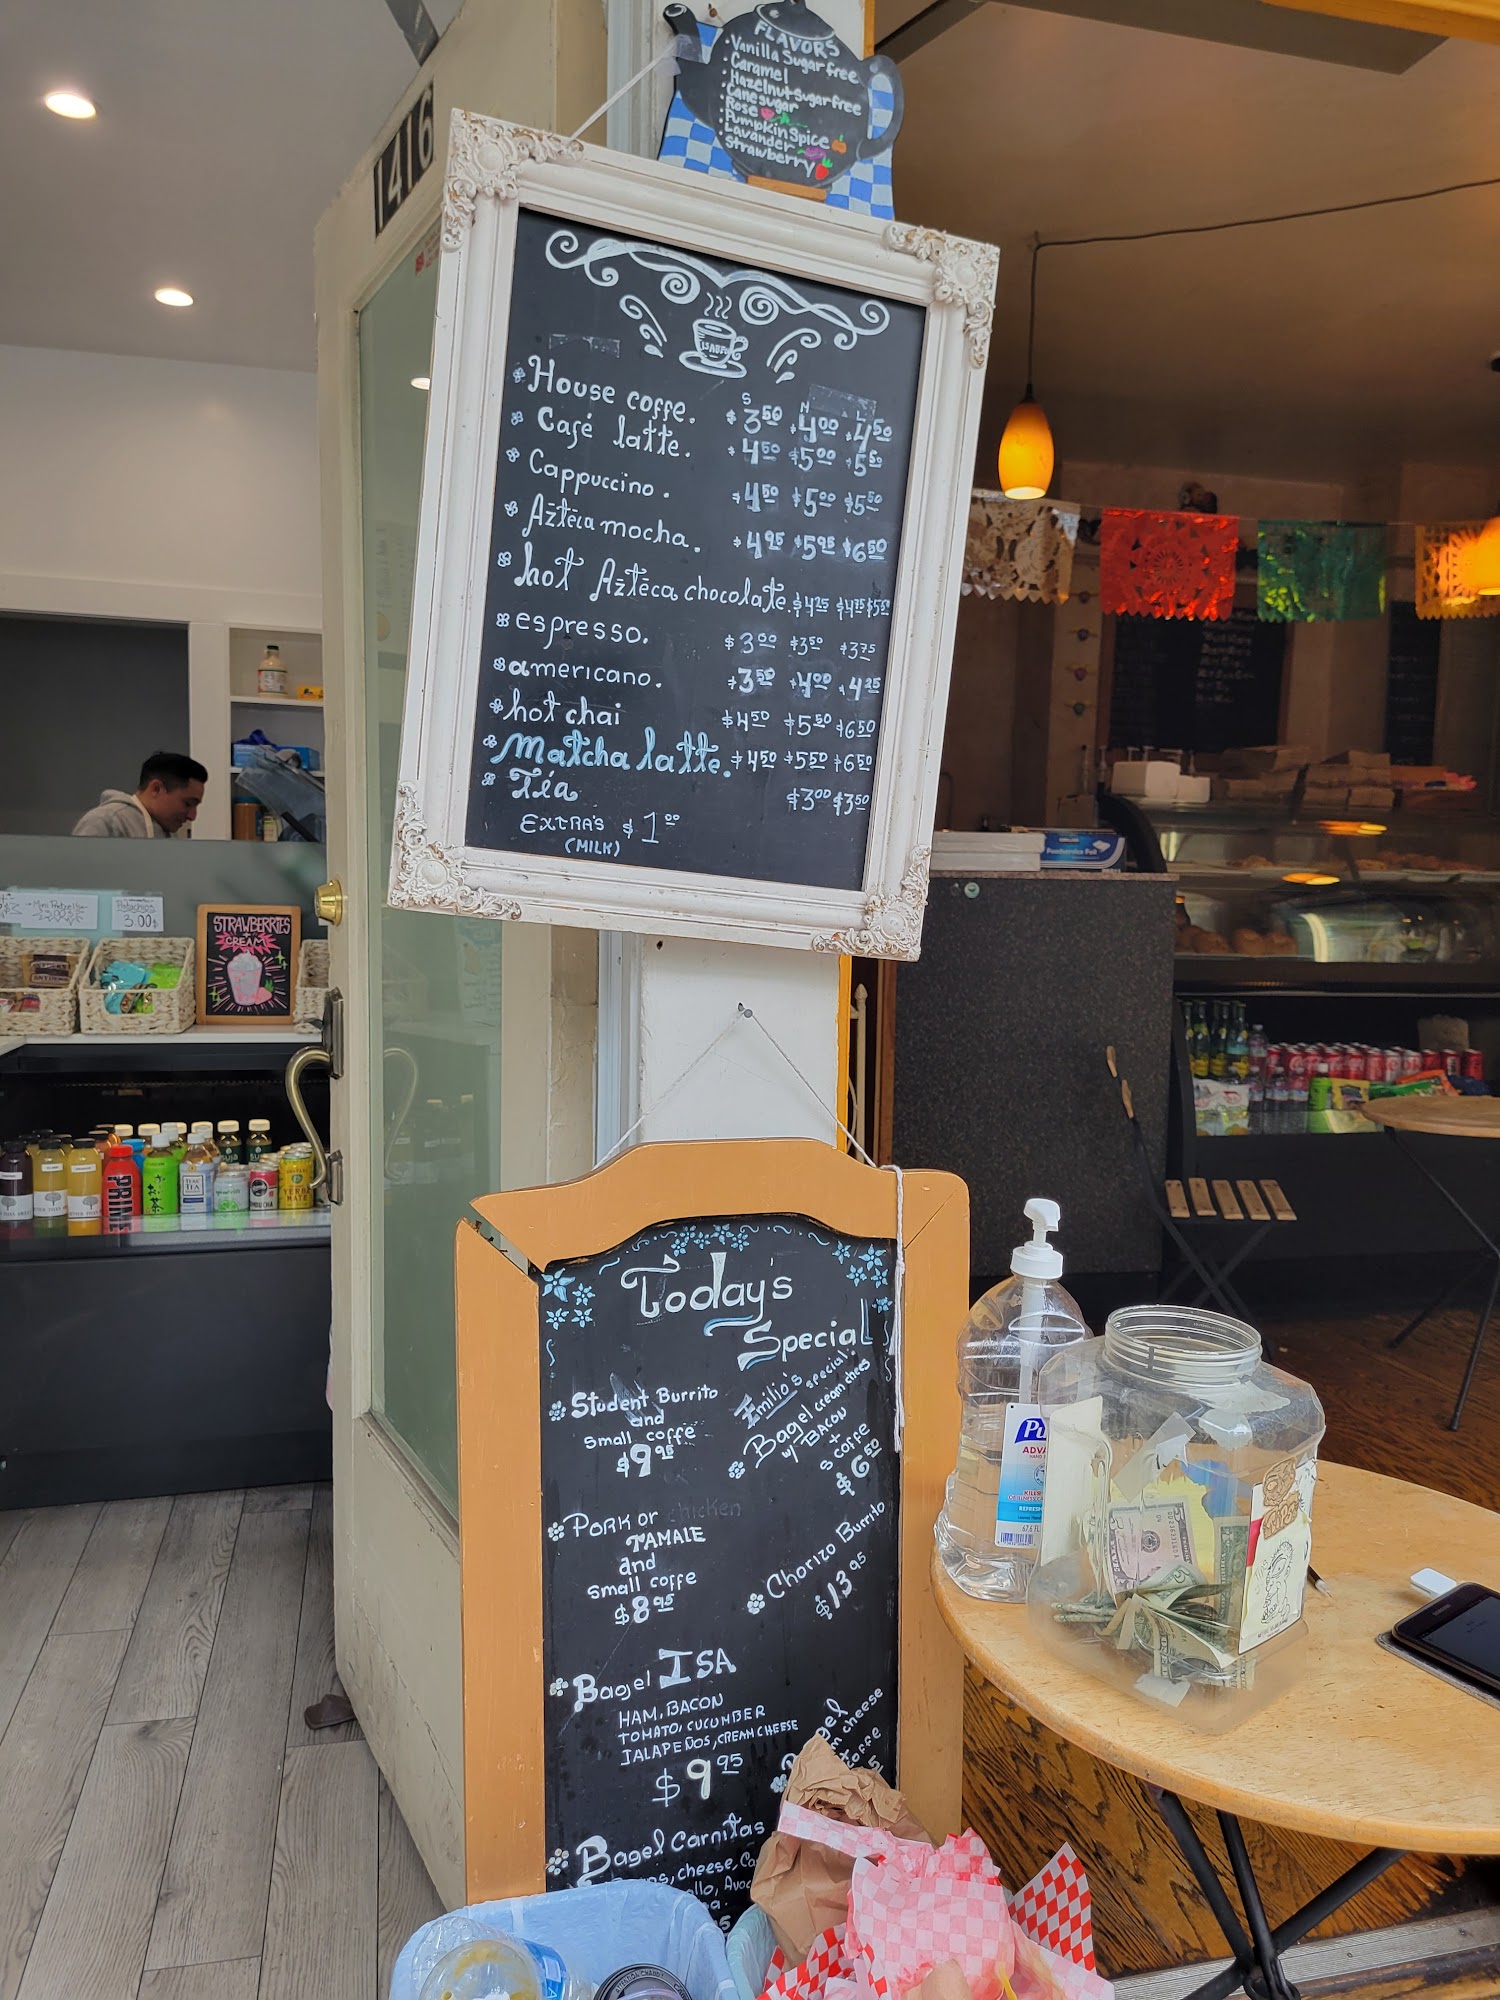 FLAVORS
• Vanilla Sugar free
• Caramel
• Hazelnut sugar free
• Cane sugar
• Rose
• Pumpkin spice
• Lavander
• Strawberry
1416
House coffe. $3.50 $4.00 $4.50
S M L
Café latte. $4.50 $5.00 $5.50
Cappuccino. $4.50 $5.00 $5.50
Azteca mocha. $4.95 $5.95 $6.50
hot Azteca chocolate. $4.25 $4.75 $5.50
espresso. $3.00 $3.50 $3.75
americano. $3.50 $4.00 $4.25
hot chai $4.50 $5.50 $6.50
Matcha latte. $4.50 $5.50 $6.50
Téa $3.00 $3.50
EXTRA'S $1.00
(MILK)
Mini Pretzels
Pistachios
3.00
STRAWBERRIES
+
CREAM
PRIME
TEAS' TEA
YERBA MATE
Today's
Special
Student Burrito
and
small coffe
$9.95
Emilio's special:
Bagel cream chees
w/ BACON
+
S COFFE
$6.50
PORK or chicken
TAMALE
and
small coffe
$8.95
Chorizo Burrito
$13.95
Bagel ISA
HAM, BACON
TOMATO, CUCUMBER
JALAPEÑOS, CREAM CHEESE
$9.95
Bagel Carnitas
cheese
Foodservice Foil
ADVA
67.6 FL